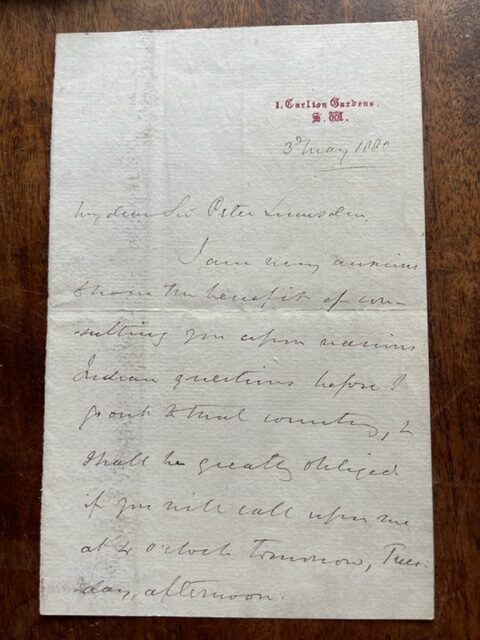 1. Carlton Gardens.
S.W.
3d May 1880
My dear Sir Peter Lumsden,
I am very anxious
to have the benefit of con-
-sulting you upon various
Indian questions before I
go out to that country, &
shall be greatly obliged
if you will call upon me
at 2 o'clock tomorrow, Tues-
day, afternoon.